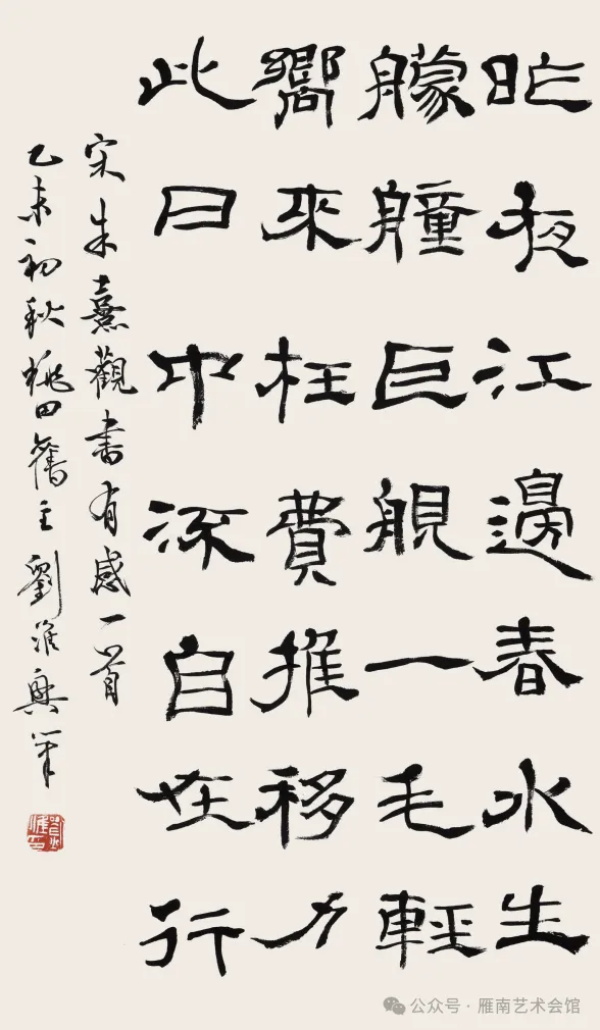 昨夜江邊春水生
艨艟巨舰一毛輕
嚮來枉費推移力
此日中流自在行
宋朱熹觀書有感一首
乙未初秋田舊主劉興筆
公众号 · 雁南艺术会馆